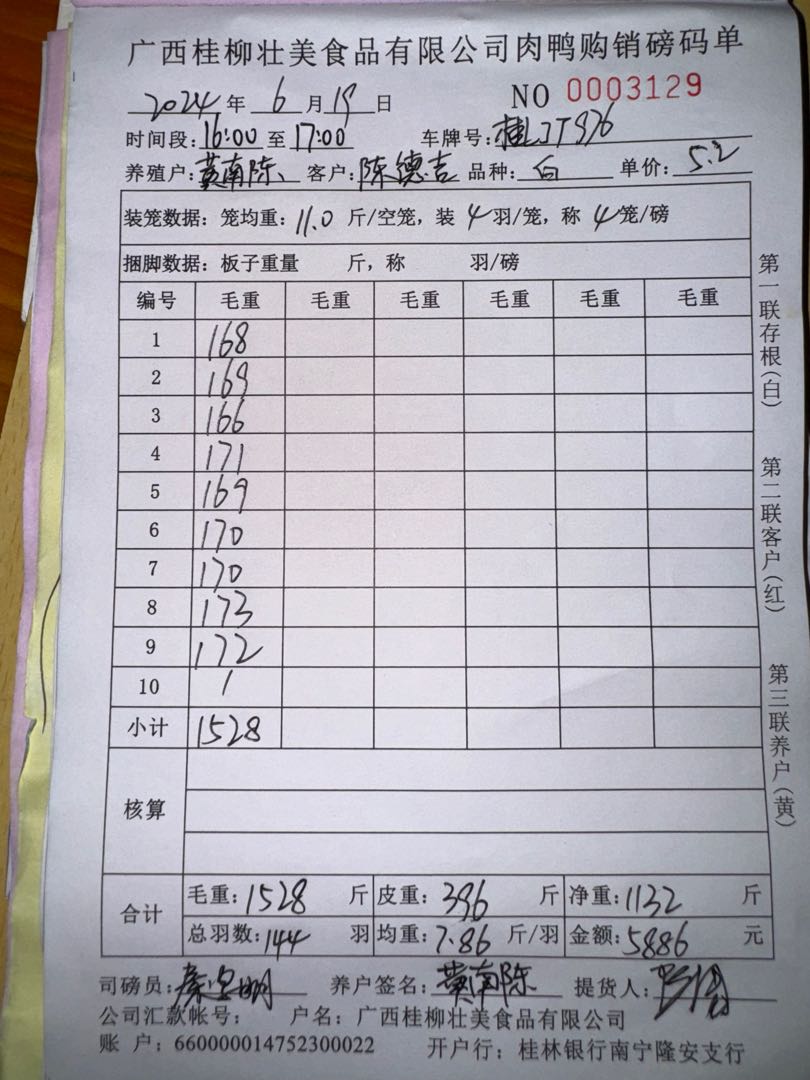 广西桂柳壮美食品有限公司肉鸭购销磅码单
2024年6月19日 NO 0003129
时间段:16:00至17:00 车牌号:桂LJT976
养殖户:黄南陈 客户:陈德吉 品种:白 单价:5.2
装笼数据:笼均重:11.0斤/空笼,装4羽/笼,称4笼/磅
捆脚数据:板子重量 斤,称 羽/磅
编号 毛重 毛重 毛重 毛重 毛重 毛重
1 168
2 169
3 166
4 171
5 169
6 170
7 170
8 173
9 172
10 /
小计 1528
核算
合计 毛重:1528斤 皮重:396斤 净重:1132斤
总羽数:144羽 均重:7.86斤/羽 金额:5886元
司磅员: 养户签名:黄南陈 提货人:
公司汇款帐号: 户名:广西桂柳壮美食品有限公司
账 户:660000014752300022 开户行:桂林银行南宁隆安支行
第一联存根(白)
第二联客户(红)
第三联养户(黄)